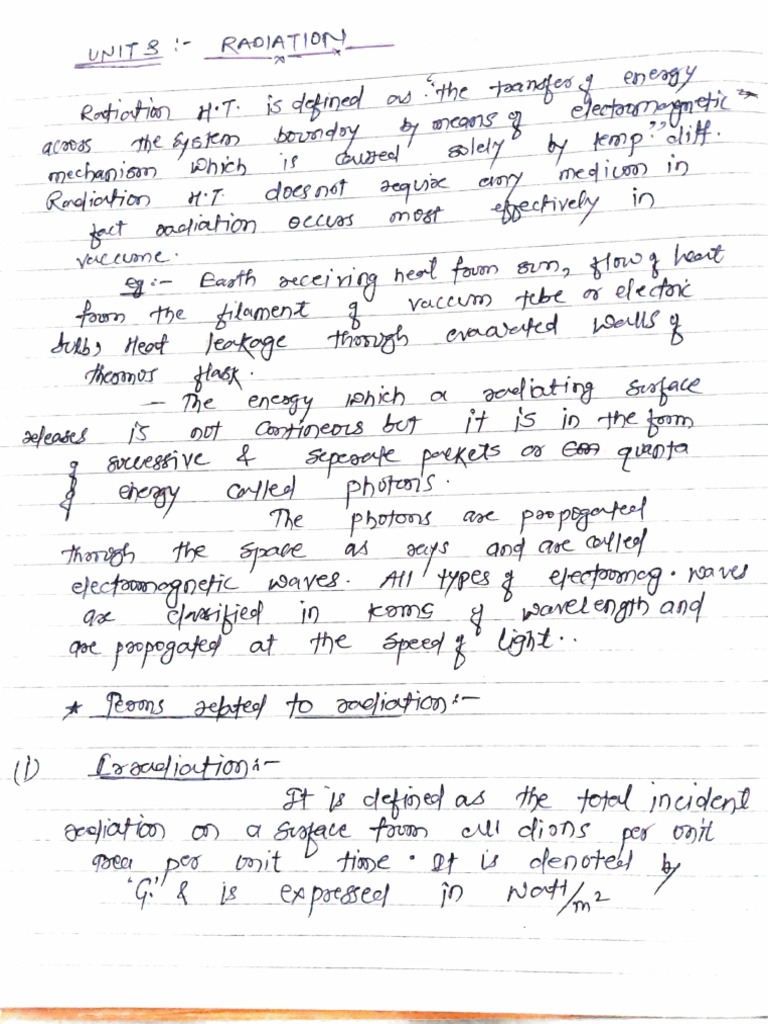 UNIT 3 :- RADIATION
Radiation H.T. is defined as "the transfer of energy
across the system boundry by means of electromagnetic
mechanism which is caused solely by temp." diff.
Radiation H.T. does not require any medium in
fact radiation occurs most effectively in
vaccume.
eg :- Earth receiving heat from sun, flow of heat
from the filament of vaccum tube or electric
bulb, Heat leakage through evacuated walls of
thermos flask.
- The energy which a radiating surface
releases is not contineous but it is in the form
of successive & seperate packets or quanta
of energy called photons.
The photons are propogated
through the space as rays and are called
electromagnetic waves. All types of electromag. waves
are classified in terms of wavelength and
are propogated at the speed of light..
* Terms related to radiation :-
(1) Irradiation :-
It is defined as the total incident
radiation on a surface from all dions per unit
area per unit time. It is denoted by
'G.' & is expressed in Watt/m²